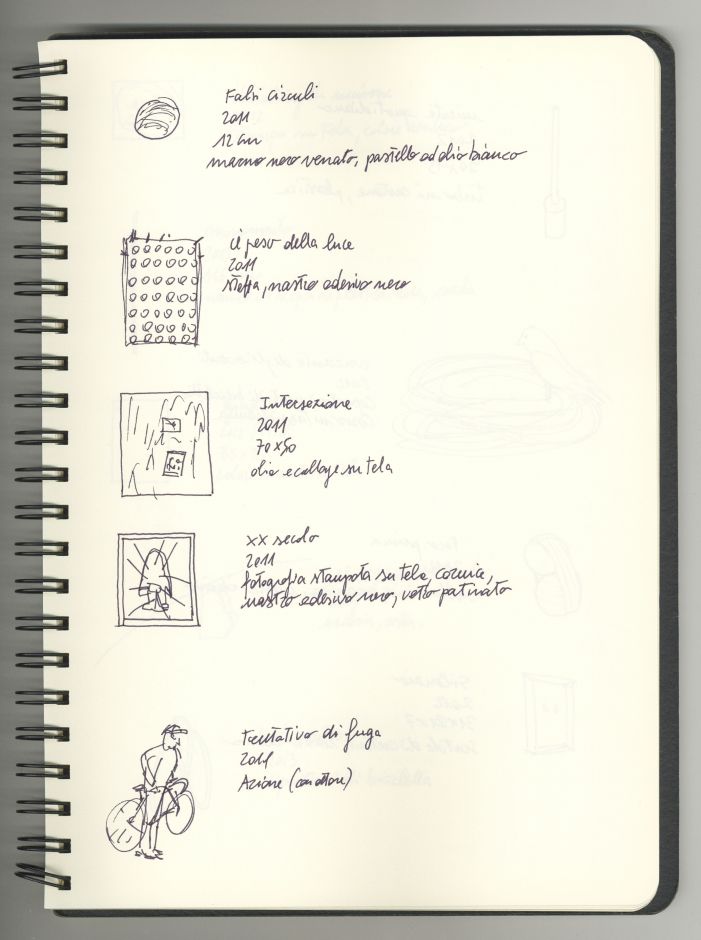 Falsi circuli
2011
12 cm
marmo nero venato, pastello ad olio bianco
il peso della luce
2011
stoffa, nastro adesivo nero
Intersezione
2011
70x50
olio e collage su tela
XX secolo
2011
fotografia stampata su tela, cornice,
nastro adesivo nero, vetro patinato
Tentativo di fuga
2011
Azione (con attore)